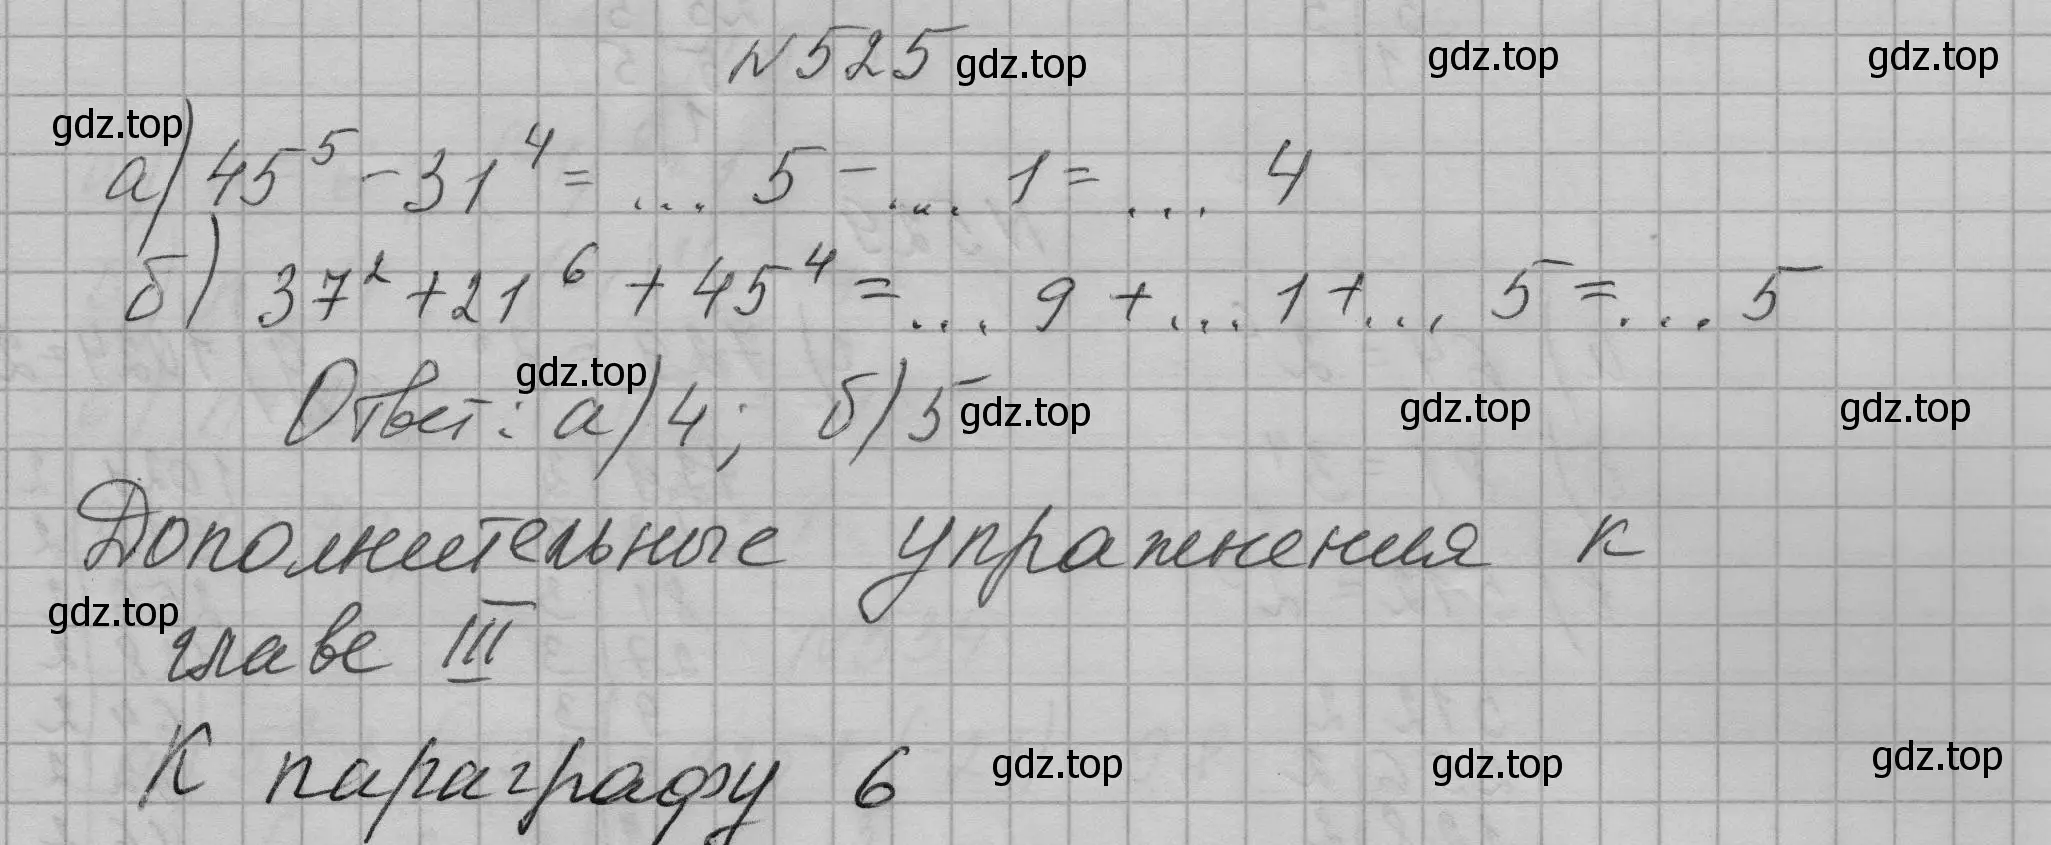 N 525 gdz.top gdz.top gdz.top
gdz.top
а) 45⁵ - 31⁴ = ... 5 - ... 1 = ... 4
б) 37² + 21⁶ + 45⁴ = ... 9 + ... 1 + ... 5 = ... 5
Ответ: а) 4; б) 5
gdz.top gdz.top gdz.top gdz.top
Дополнительные упражнения к
gdz.top
главе III
К параграфу 6
gdz.top gdz.top gdz.top